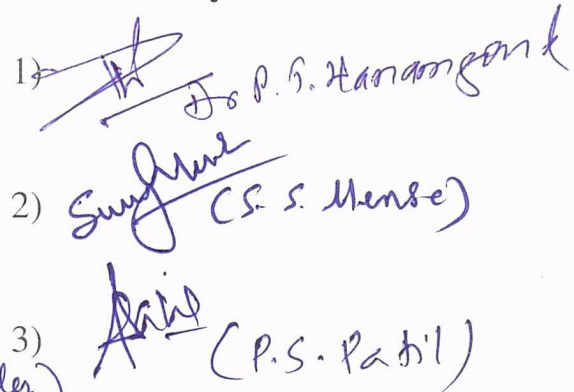 1) Dr P. T. Hanamgond
2) (S. S. Mense)
3) (P.S. Patil)